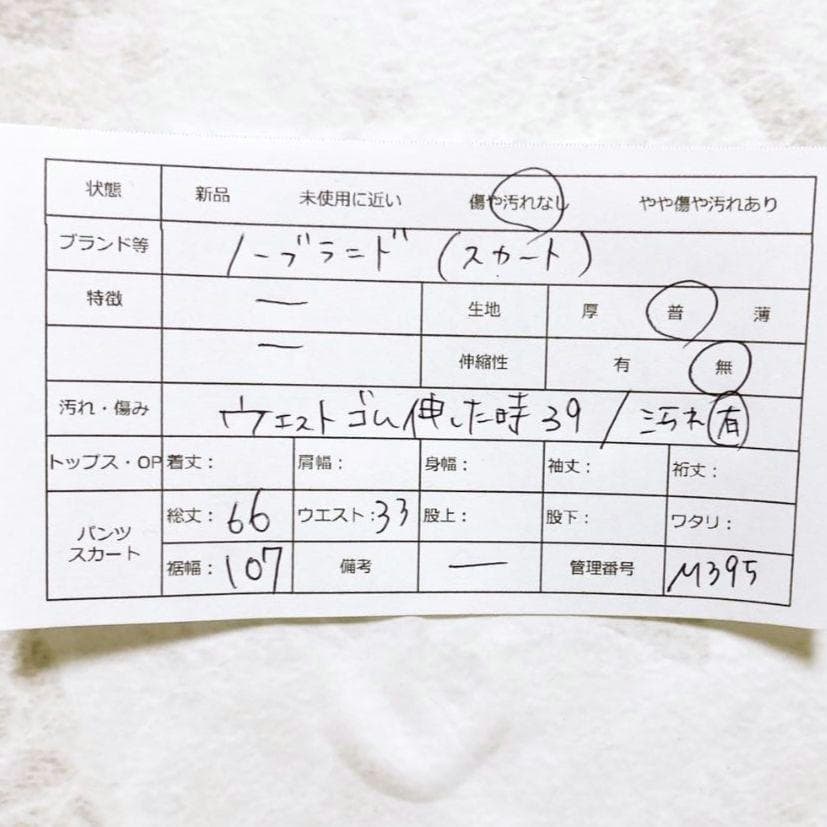 状態 新品 未使用に近い 傷や汚れなし やや傷や汚れあり
ブランド等 ノーブランド (スカート)
特徴 ー 生地 厚 普 薄
ー 伸縮性 有 無
汚れ・傷み ウエストゴム伸した時39/汚れ有
トップス・OP 着丈: 肩幅: 身幅: 袖丈: 裄丈:
パンツ スカート 総丈:66 ウエスト:33 股上: 股下: ワタリ:
裾幅:107 備考 ー 管理番号 M395